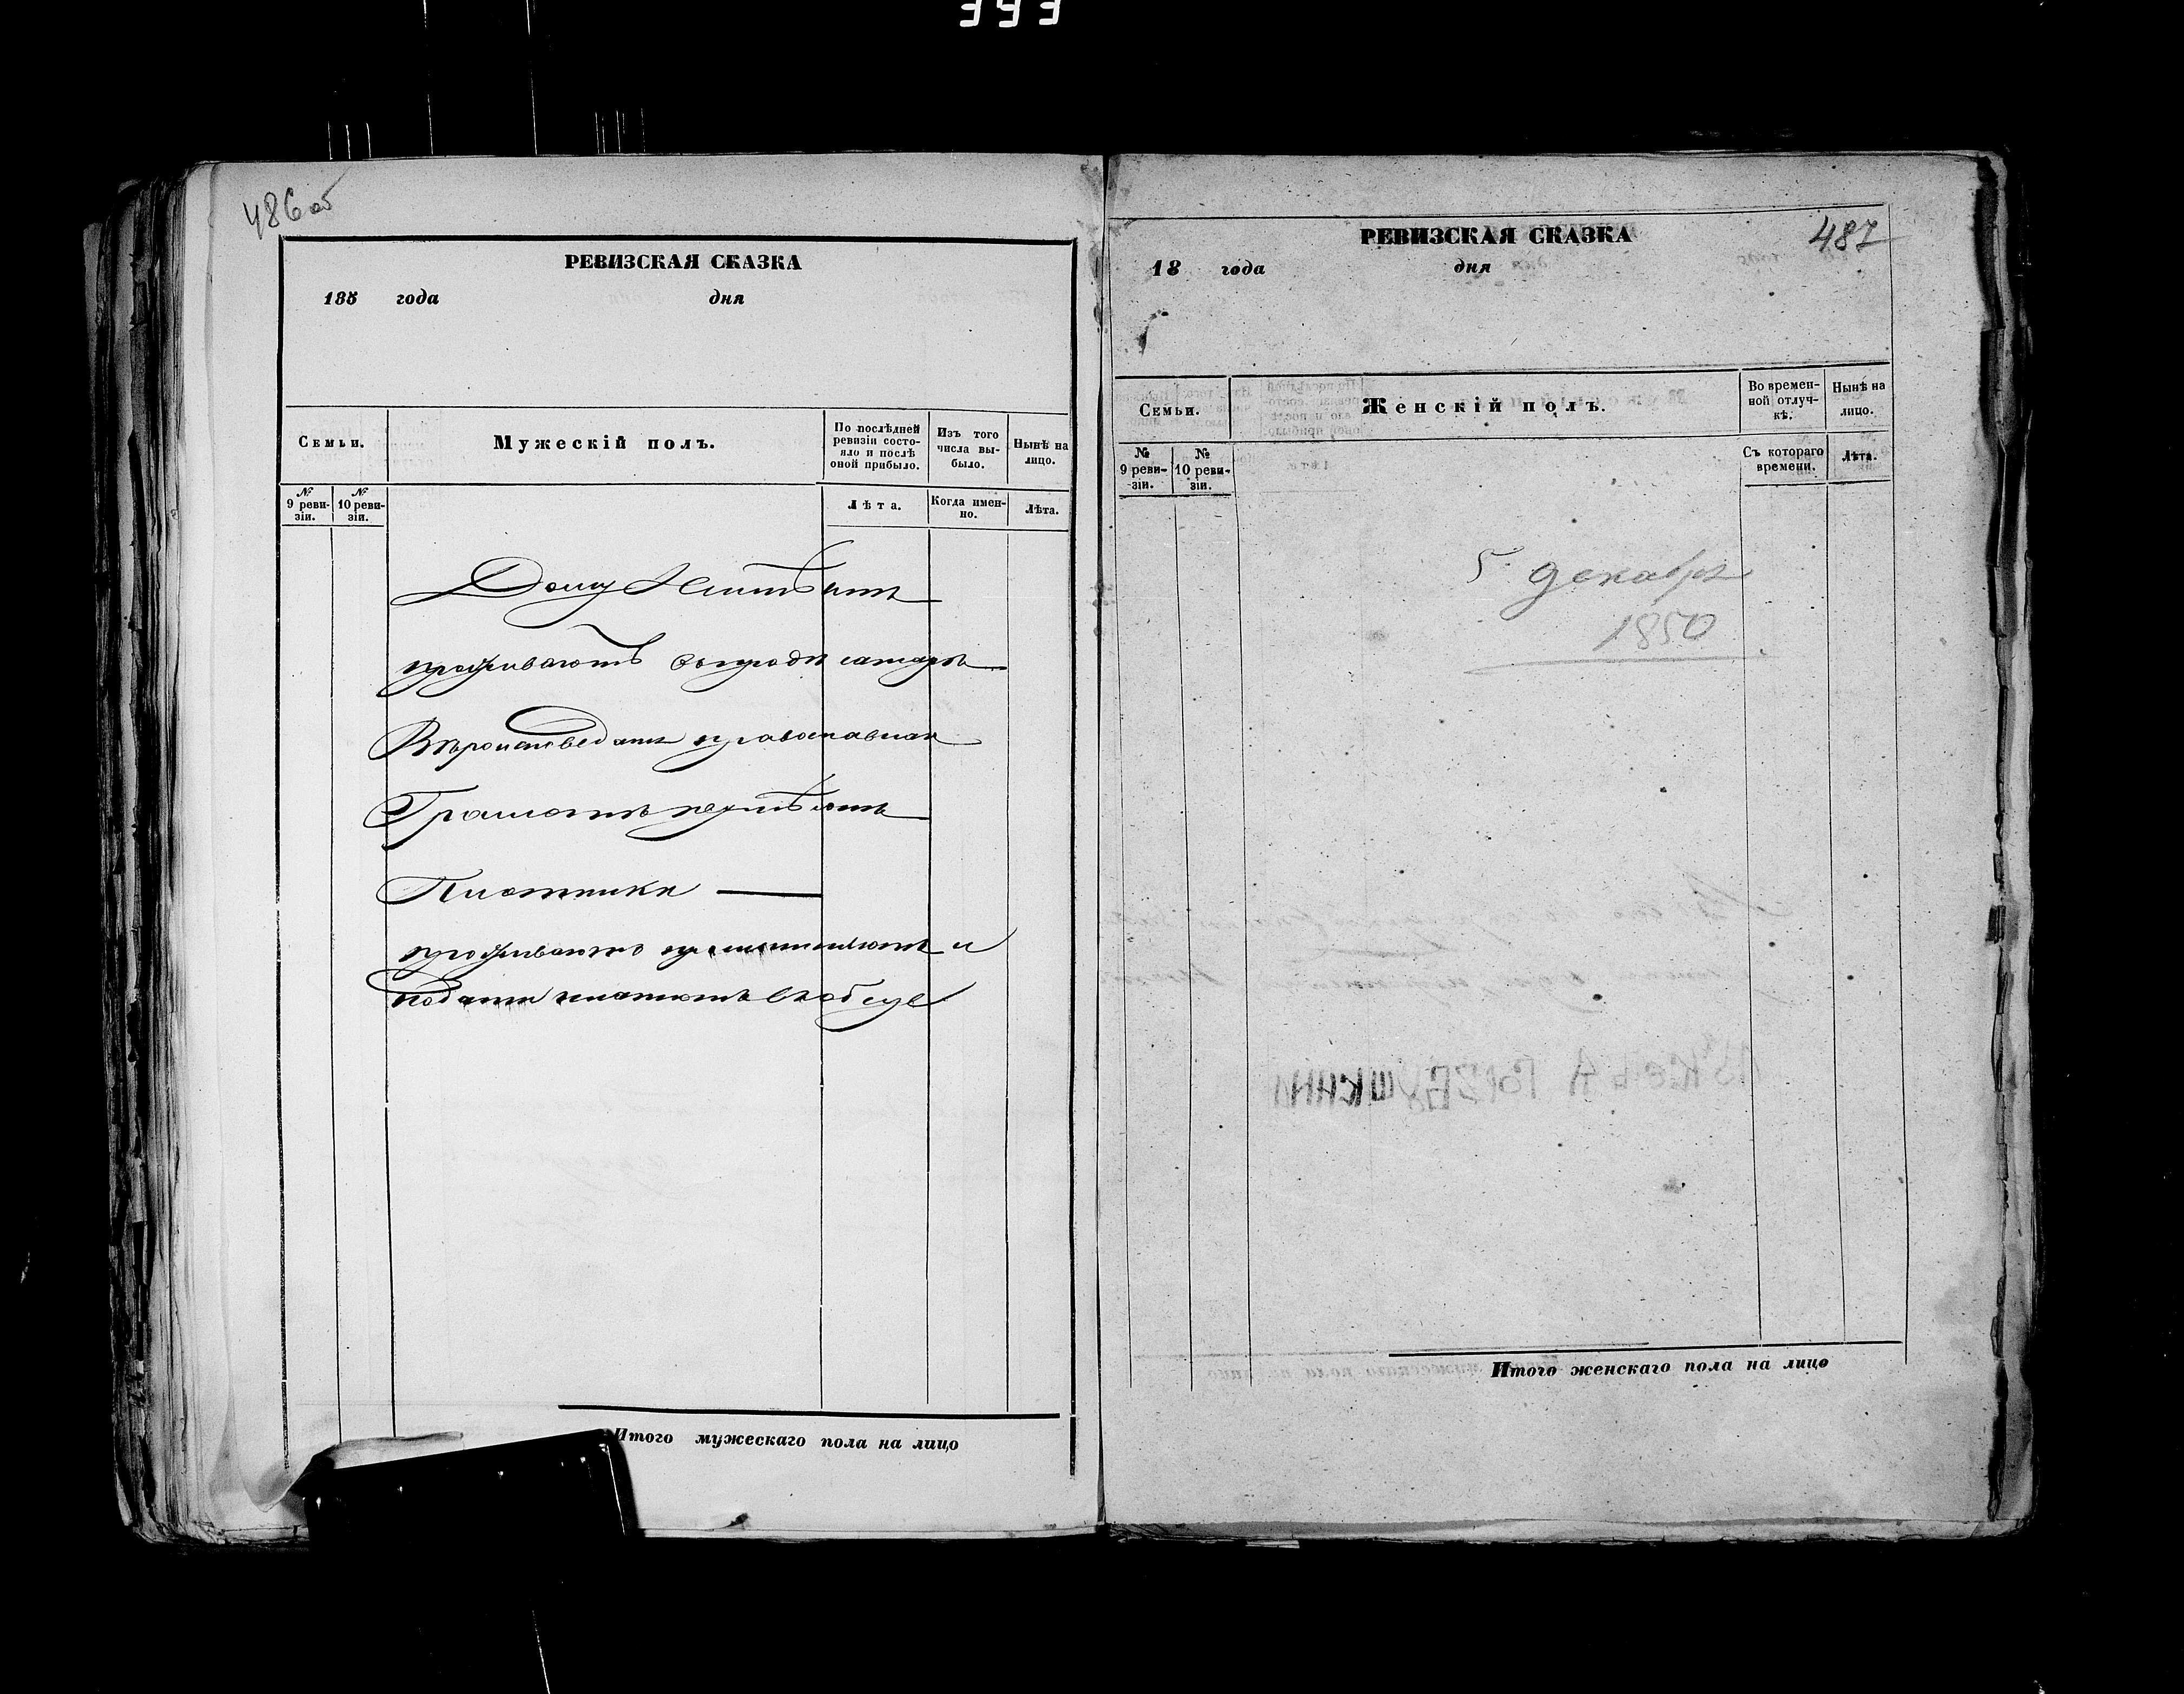 393
486 об
РЕВИЗСКАЯ СКАЗКА
185 года дня
Семьи.
Мужескій полъ.
По послѣдней ревизіи состояло и послѣ оной прибыло.
Изъ того числа выбыло.
Нынѣ на лицо.
№ 9 ревизіи.
№ 10 ревизіи.
Лѣта.
Когда именно.
Лѣта.
Дому
проживаютъ въ городѣ самарѣ
Вѣроисповеданія православнаго
Грамотѣ неумѣютъ
Плотники
проживаютъ и
подати платютъ вкобще
Итого мужескаго пола на лицо
487
РЕВИЗСКАЯ СКАЗКА
18 года дня
Семьи.
Женскій полъ.
Во временной отлучкѣ.
Нынѣ на лицо.
№ 9 ревизіи.
№ 10 ревизіи.
Съ котораго времени.
Лѣта.
5 декабря
1850
Итого женскаго пола на лицо